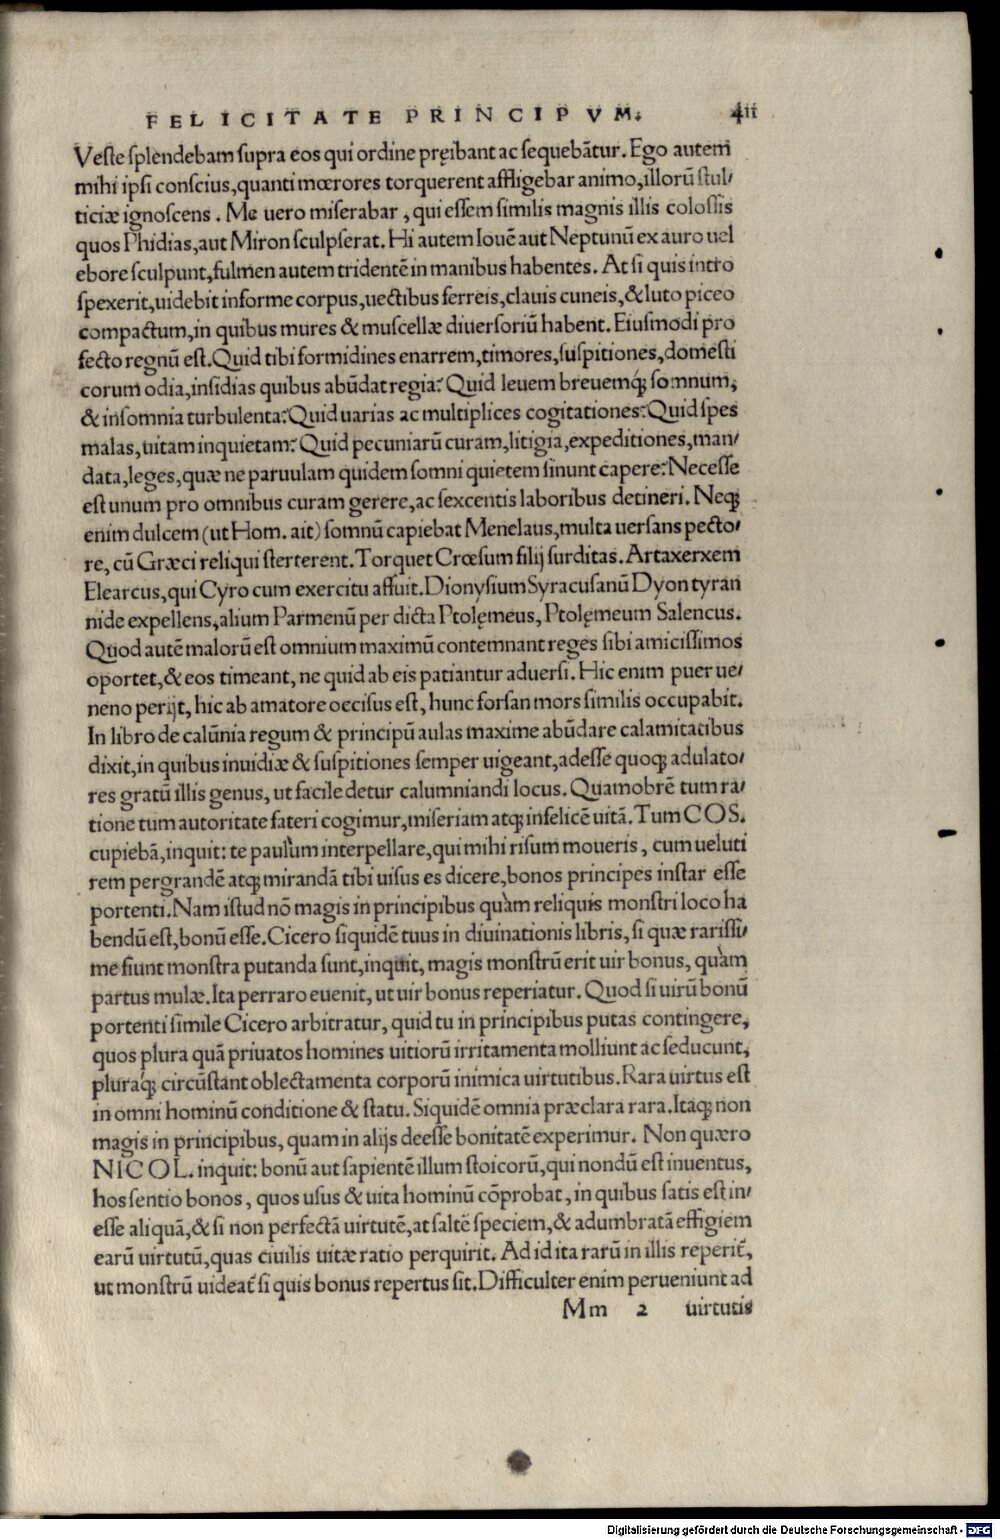 FELICITATE PRINCIPVM. 411
Veste splendebam supra eos qui ordine pręibant ac sequebãtur. Ego autem
mihi ipsi conscius, quanti mœrores torquerent affligebar animo, illorũ stul/
ticiæ ignoscens. Me uero miserabar, qui essem similis magnis illis colossis
quos Phidias, aut Miron sculpserat. Hi autem Iouẽ aut Neptunũ ex auro uel
ebore sculpunt, fulmen autem tridentẽ in manibus habentes. At si quis intro
spexerit, uidebit informe corpus, uectibus ferreis, clauis cuneis, & luto piceo
compactum, in quibus mures & muscellæ diuersoriũ habent. Eiusmodi pro
fecto regnũ est. Quid tibi formidines enarrem, timores, suspitiones, domesti
corum odia, insidias quibus abũdat regia? Quid leuem breuemq́; somnum,
& insomnia turbulenta? Quid uarias ac multiplices cogitationes? Quid spes
malas, uitam inquietam? Quid pecuniarũ curam, litigia, expeditiones, man/
data, leges, quæ ne paruulam quidem somni quietem sinunt capere? Necesse
est unum pro omnibus curam gerere, ac sexcentis laboribus detineri. Neq;
enim dulcem (ut Hom. ait) somnũ capiebat Menelaus, multa uersans pecto/
re, cũ Græci reliqui sterterent. Torquet Crœsum filij surditas. Artaxerxem
Elearcus, qui Cyro cum exercitu affuit. Dionysium Syracusanũ Dyon tyran
nide expellens, alium Parmenũ per dicta Ptolęmeus, Ptolęmeum Salencus.
Quod autẽ malorũ est omnium maximũ contemnant reges sibi amicissimos
oportet, & eos timeant, ne quid ab eis patiantur aduersi. Hic enim puer ue/
neno perijt, hic ab amatore occisus est, hunc forsan mors similis occupabit.
In libro de calũnia regum & principũ aulas maxime abũdare calamitatibus
dixit, in quibus inuidiæ & suspitiones semper uigeant, adesse quoq; adulato/
res gratũ illis genus, ut facile detur calumniandi locus. Quamobrẽ tum ra/
tione tum autoritate fateri cogimur, miseriam atq; infelicẽ uitã. Tum COS.
cupiebã, inquit: te paulùm interpellare, qui mihi risum moueris, cum ueluti
rem pergrandẽ atq; mirandã tibi uisus es dicere, bonos principes instar esse
portenti. Nam istud nõ magis in principibus quàm reliquis monstri loco ha
bendũ est, bonũ esse. Cicero siquidẽ tuus in diuinationis libris, si quæ rarissi/
me fiunt monstra putanda sunt, inquit, magis monstrũ erit uir bonus, quàm
partus mulæ. Ita perraro euenit, ut uir bonus reperiatur. Quod si uirũ bonũ
portenti simile Cicero arbitratur, quid tu in principibus putas contingere,
quos plura quã priuatos homines uitiorũ irritamenta molliunt ac seducunt,
pluraq́; circũstant oblectamenta corporũ inimica uirtutibus. Rara uirtus est
in omni hominũ conditione & statu. Siquidẽ omnia præclara rara. Itaq; non
magis in principibus, quam in alijs deesse bonitatẽ experimur. Non quæro
NICOL. inquit: bonũ aut sapientẽ illum stoicorũ, qui nondũ est inuentus,
hos sentio bonos, quos usus & uita hominũ cõprobat, in quibus satis est in/
esse aliquã, & si non perfectã uirtutẽ, at saltẽ speciem, & adumbratã effigiem
earũ uirtutũ, quas ciuilis uitæ ratio perquirit. Ad id ita rarũ in illis reperit̃,
ut monstrũ uideat̃ si quis bonus repertus sit. Difficulter enim perueniunt ad
Mm 2 uirtutis
Digitalisierung gefördert durch die Deutsche Forschungsgemeinschaft - DFG